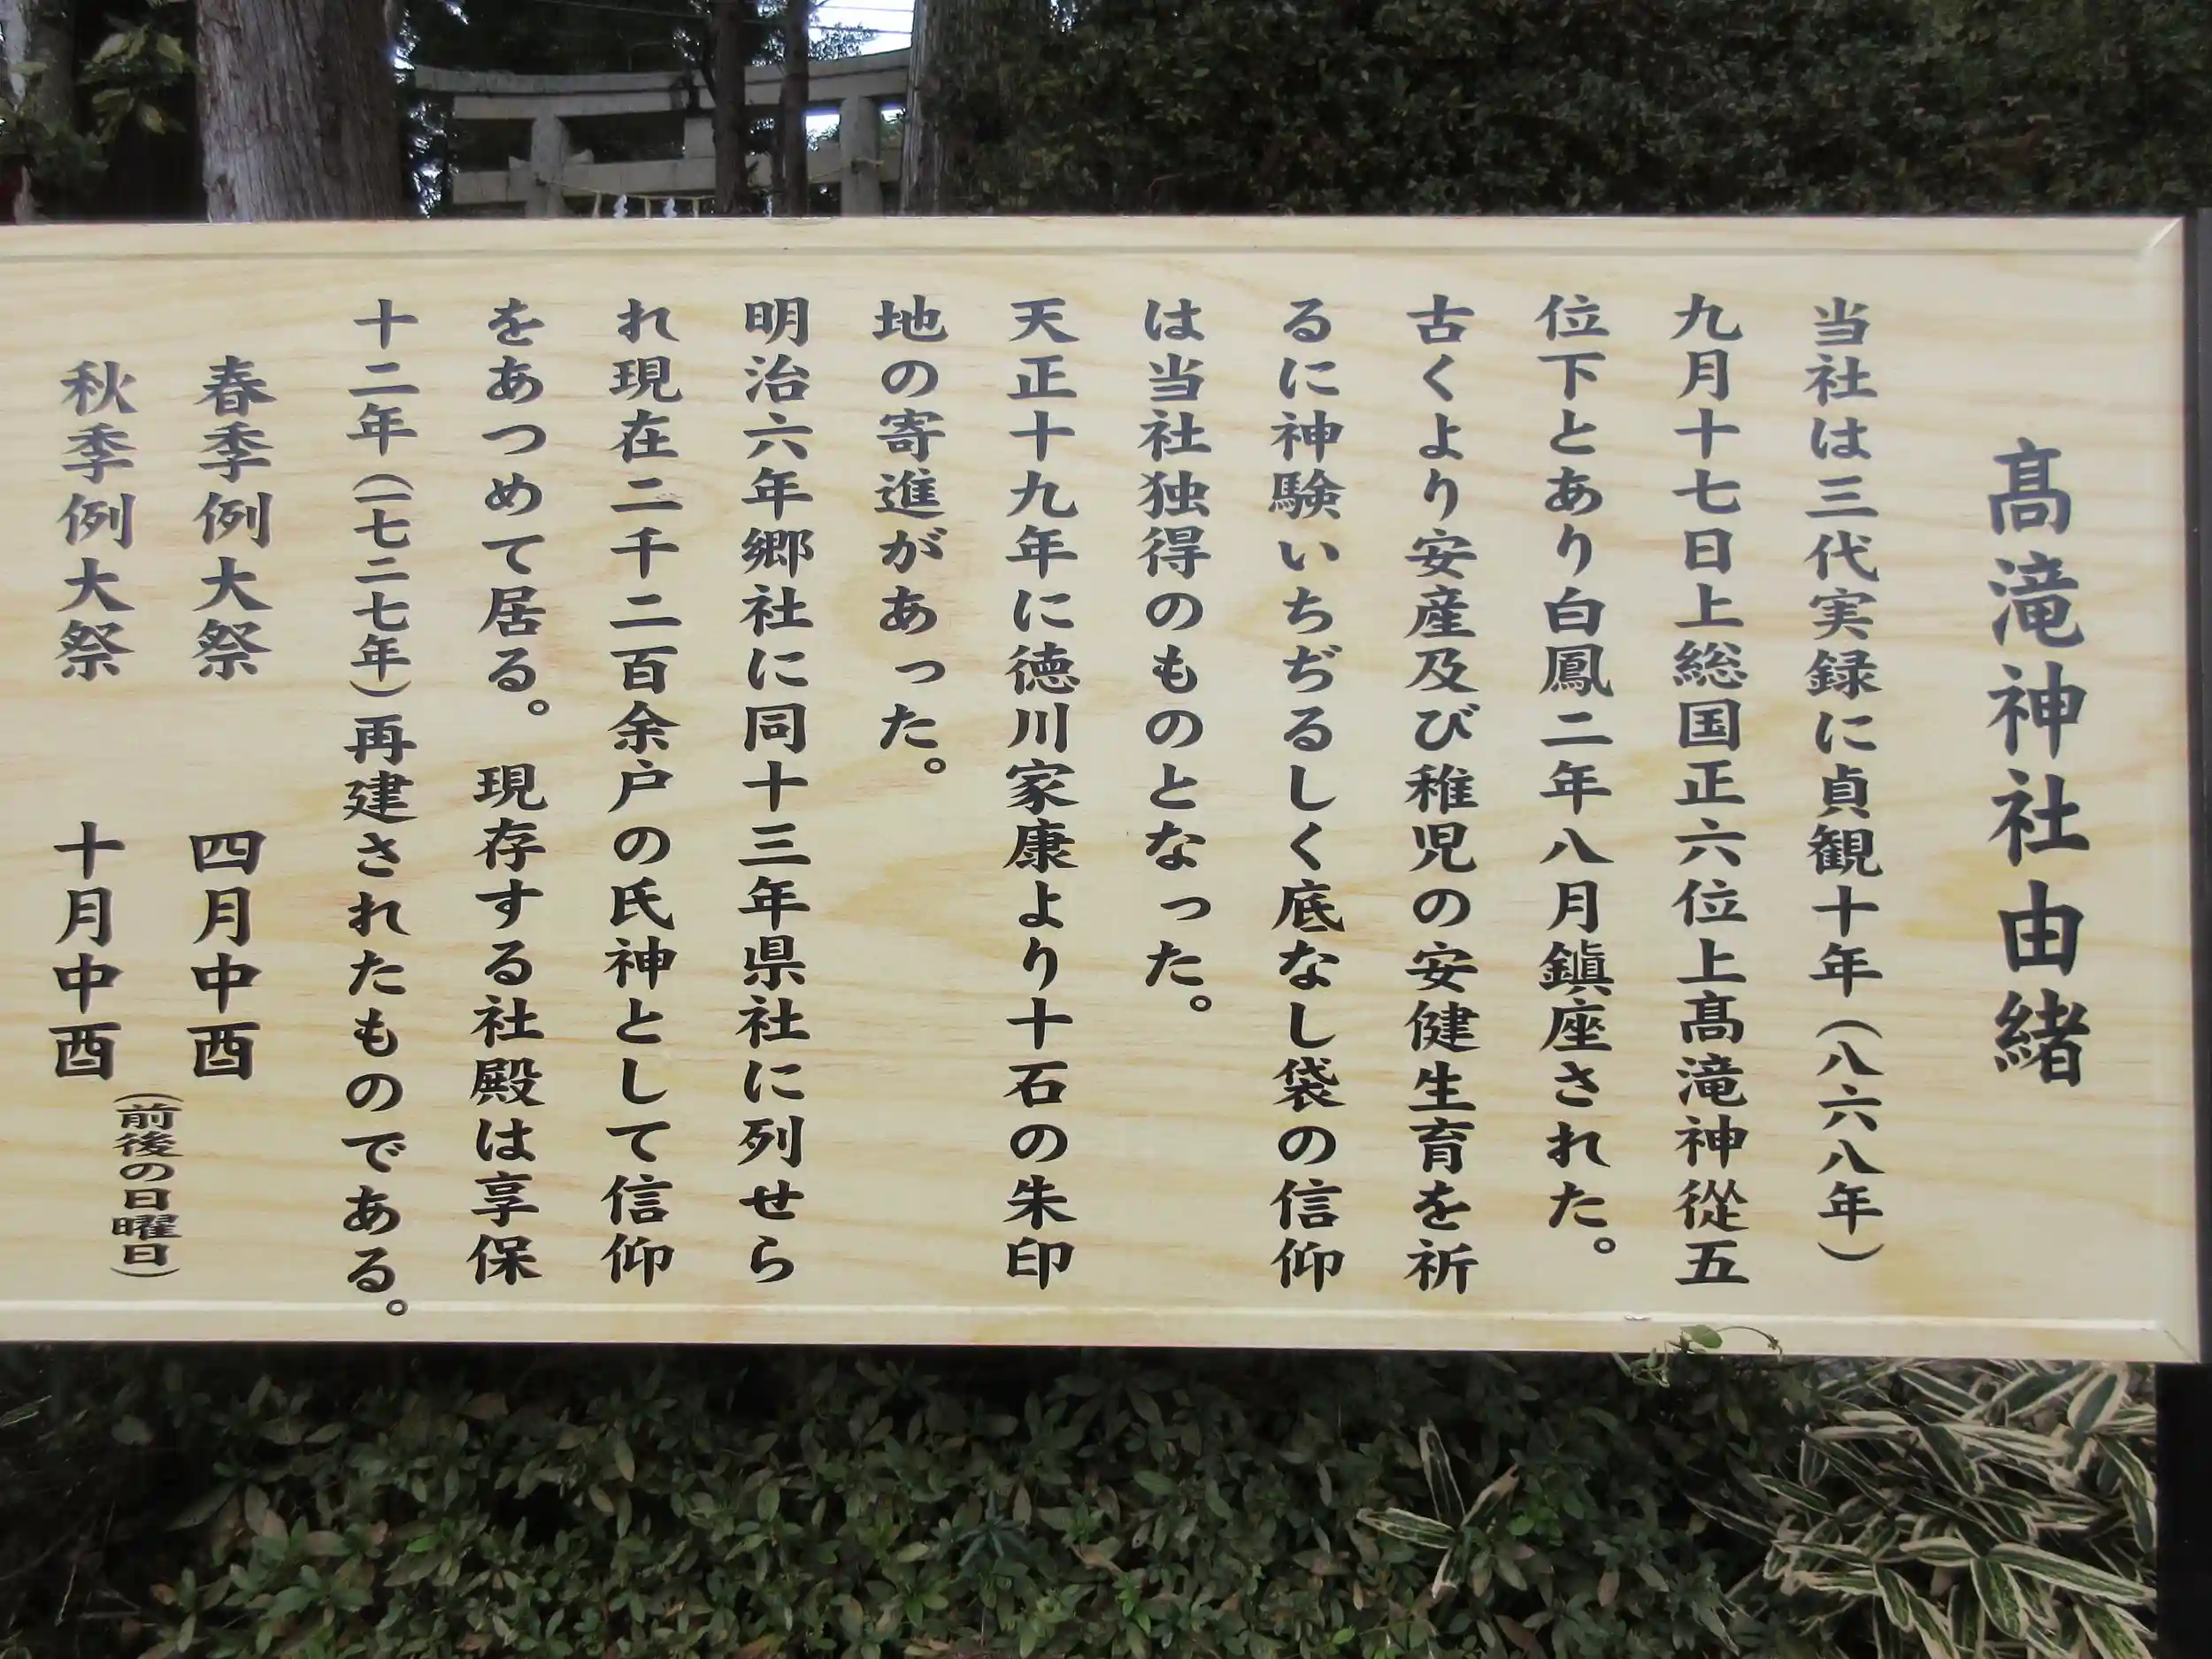 髙滝神社由緒
当社は三代実録に貞観十年（八六八年）
九月十七日上総国正六位上髙滝神從五
位下とあり白鳳二年八月鎭座された。
古くより安産及び稚児の安健生育を祈
るに神験いちぢるしく底なし袋の信仰
は当社独得のものとなった。
天正十九年に徳川家康より十石の朱印
地の寄進があった。
明治六年郷社に同十三年県社に列せら
れ現在二千二百余戸の氏神として信仰
をあつめて居る。現存する社殿は享保
十二年（一七二七年）再建されたものである。
春季例大祭　四月中酉
（前後の日曜日）
秋季例大祭　十月中酉